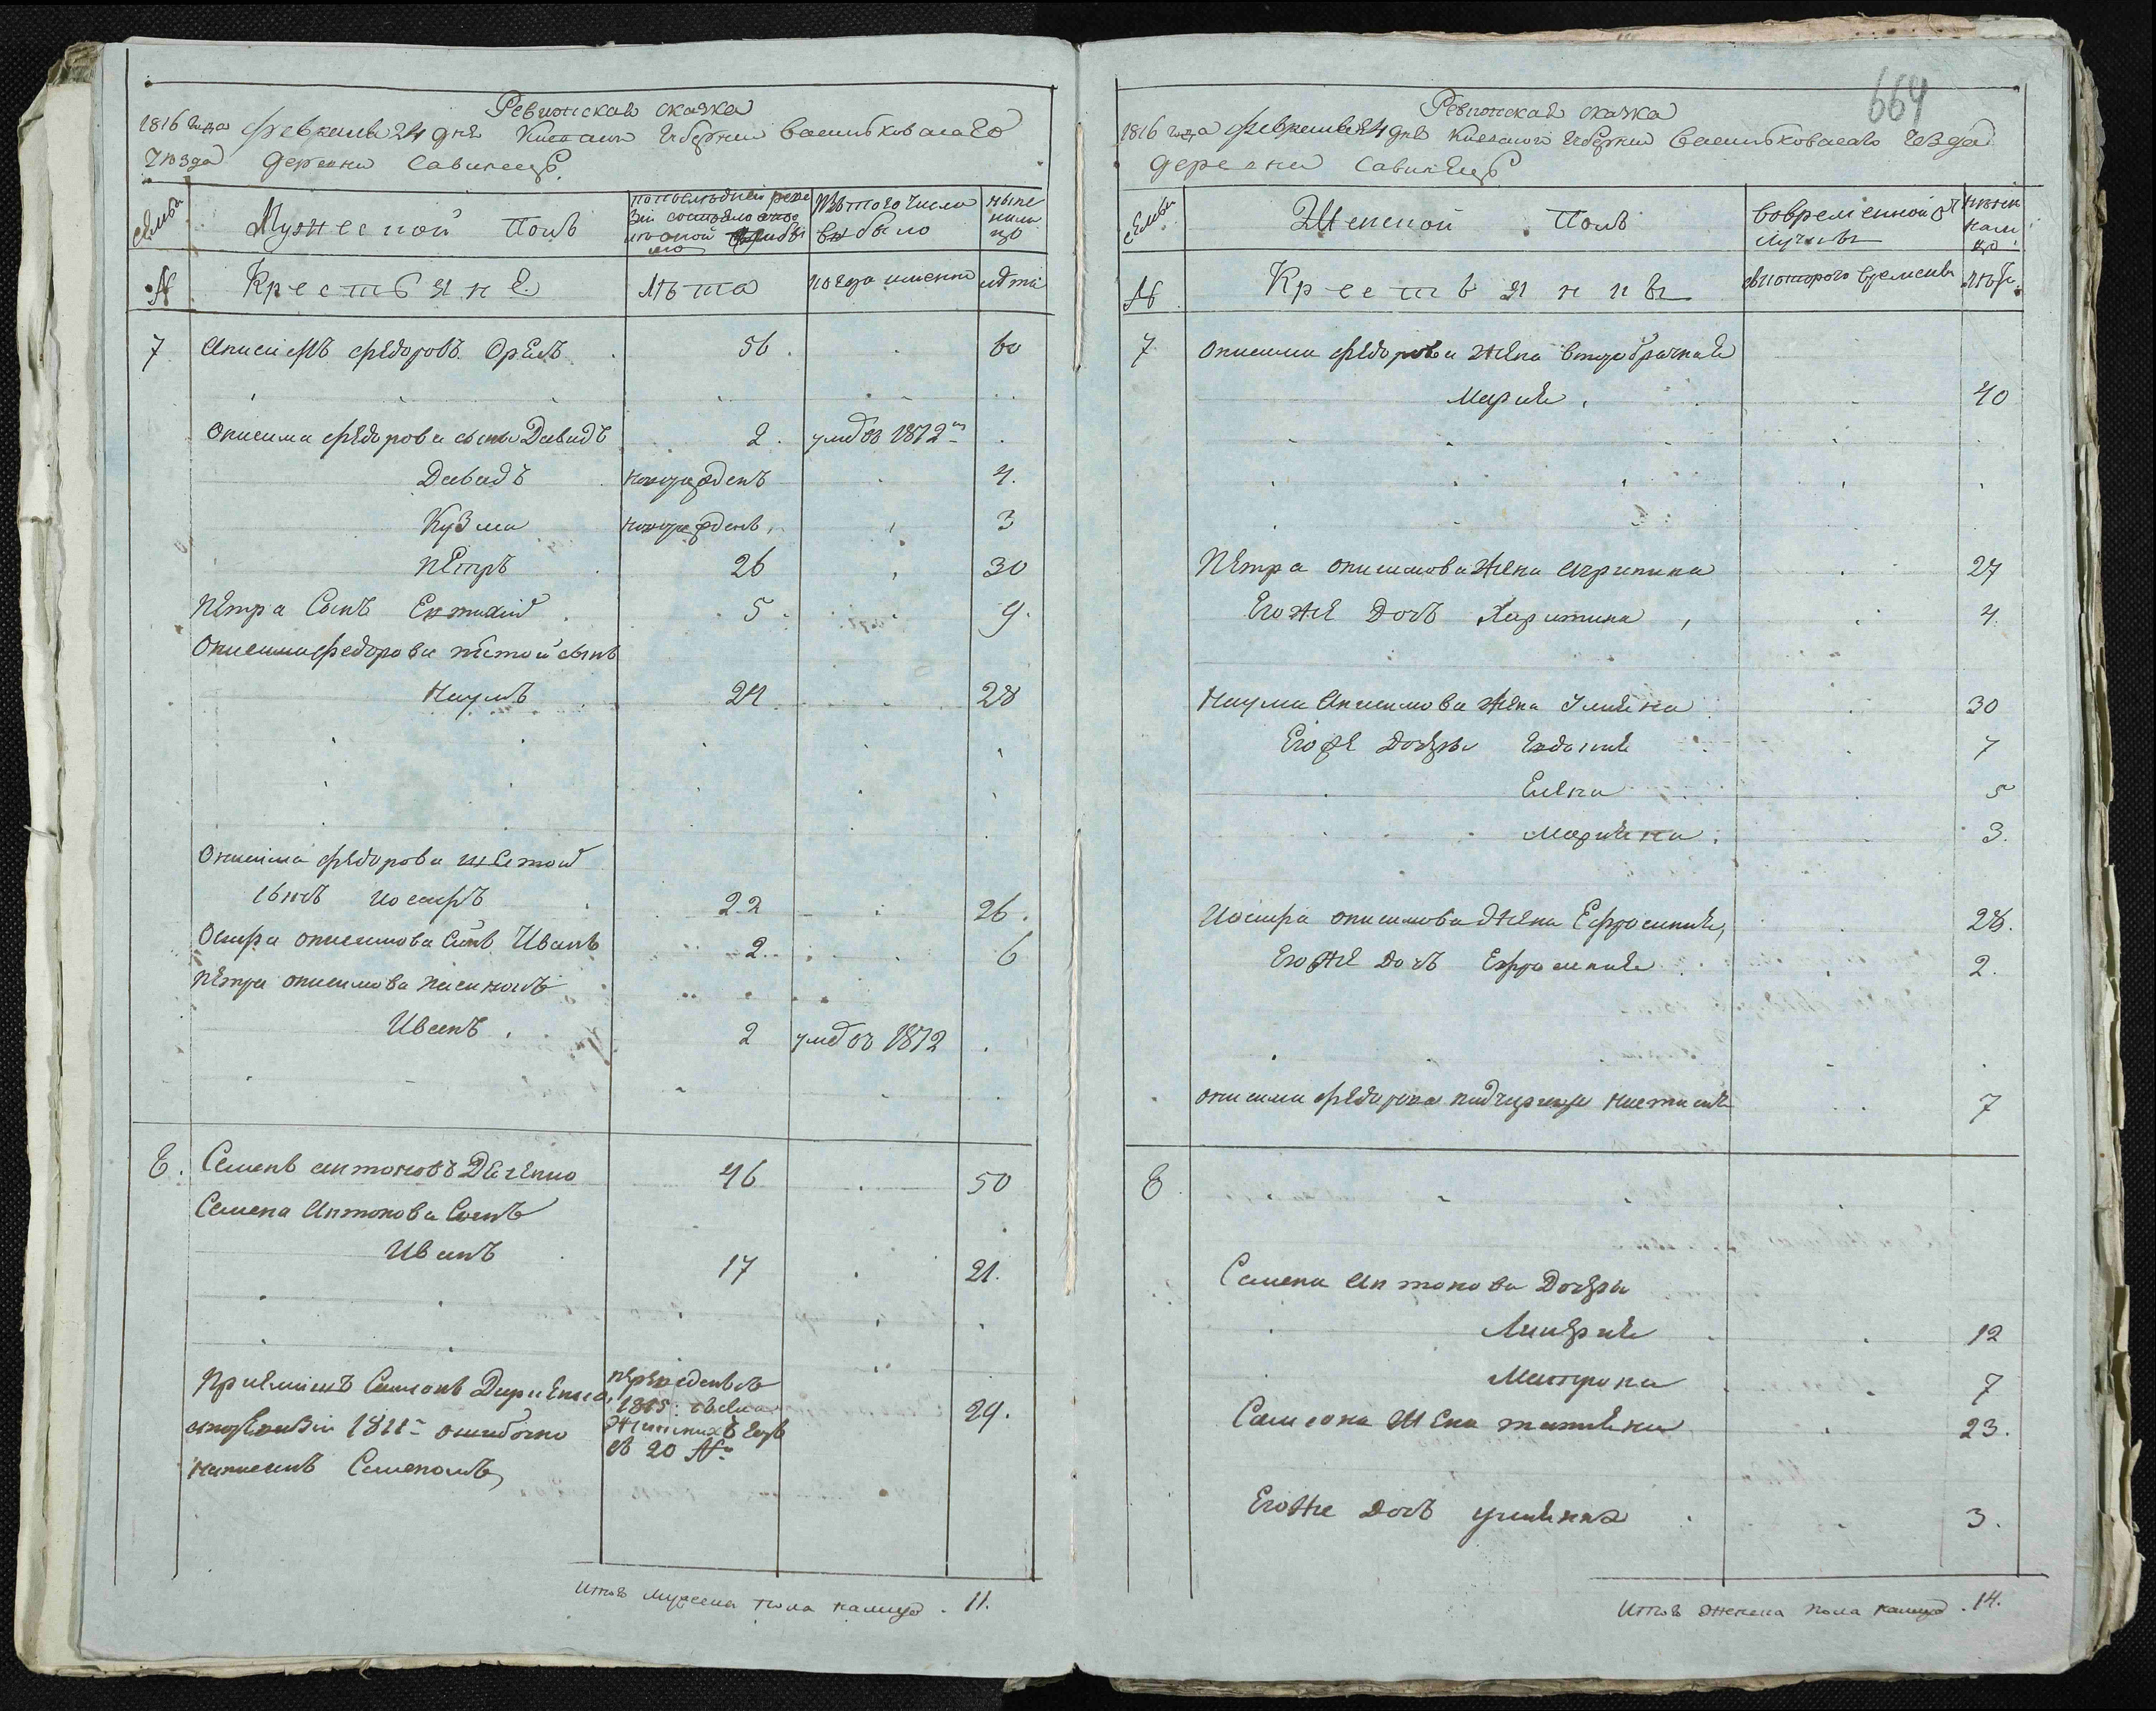 Ревижская сказка
1816 года февраля 24 дня Киевской Губернии Васильковского
Уезда деревни Савинец
семьи
Мужеской Полъ
попоследней реви
зіи состояло
Изъ того числа
выбыло
ныне
нали
цо
№
Крестьяне
Лѣта
когда именно
лѣта
7 Анисимъ Федоровъ Орелъ 56 60
Онисима Федорова сынъ Давидъ 2 умеръ 1812
Давидъ новорожденъ 4
Кузма новорожденъ 3
Петръ 26 30
Петра Сынъ Евтихій 5 9
Онисима Федорова сынъ
Наумъ 24 28
Онисима Федорова
сынъ Иосифъ 22 26
Осифа Онисимова Сынъ Иванъ 2 6
Петра Онисимова пасынокъ
Иванъ 2 умеръ 1812
8 Семенъ Антоновъ 46 50
Семена Антонова Сынъ
Иванъ 17 21
Приемышъ Самсонъ 24
ревизіи 1811 ошибочно
написанъ Семеномъ
переведенъ
1815
въ 20 №
Итого мужеска пола налицо 11
664
Ревижская сказка
1816 года февраля 24 дня Киевской Губернии Васильковского Уезда
деревни Савинец
семьи
Женской Полъ
во временной от
лучкѣ
ныне
нали
цо
№
Крестьянки
съ которого времени
лѣта
7 Онисима Федорова жена второбрачная
Мария 40
Петра Онисимова жена Агрипина 27
Его же дочь Харитина 4
Наума Анисимова жена Улияна 30
Его же дочери Евдокия 7
Елена 5
Марияна 3
Иосифа Онисимова жена Ефросиния 28
Его же дочь Ефросиния 2
Онисима Федорова падчерица Настасия 7
8
Семена Антонова Дочери
Лукерия 12
Матрона 7
Самсона жена Татияна 23
Его же дочь Улияна 3
Итого женска пола налицо 14